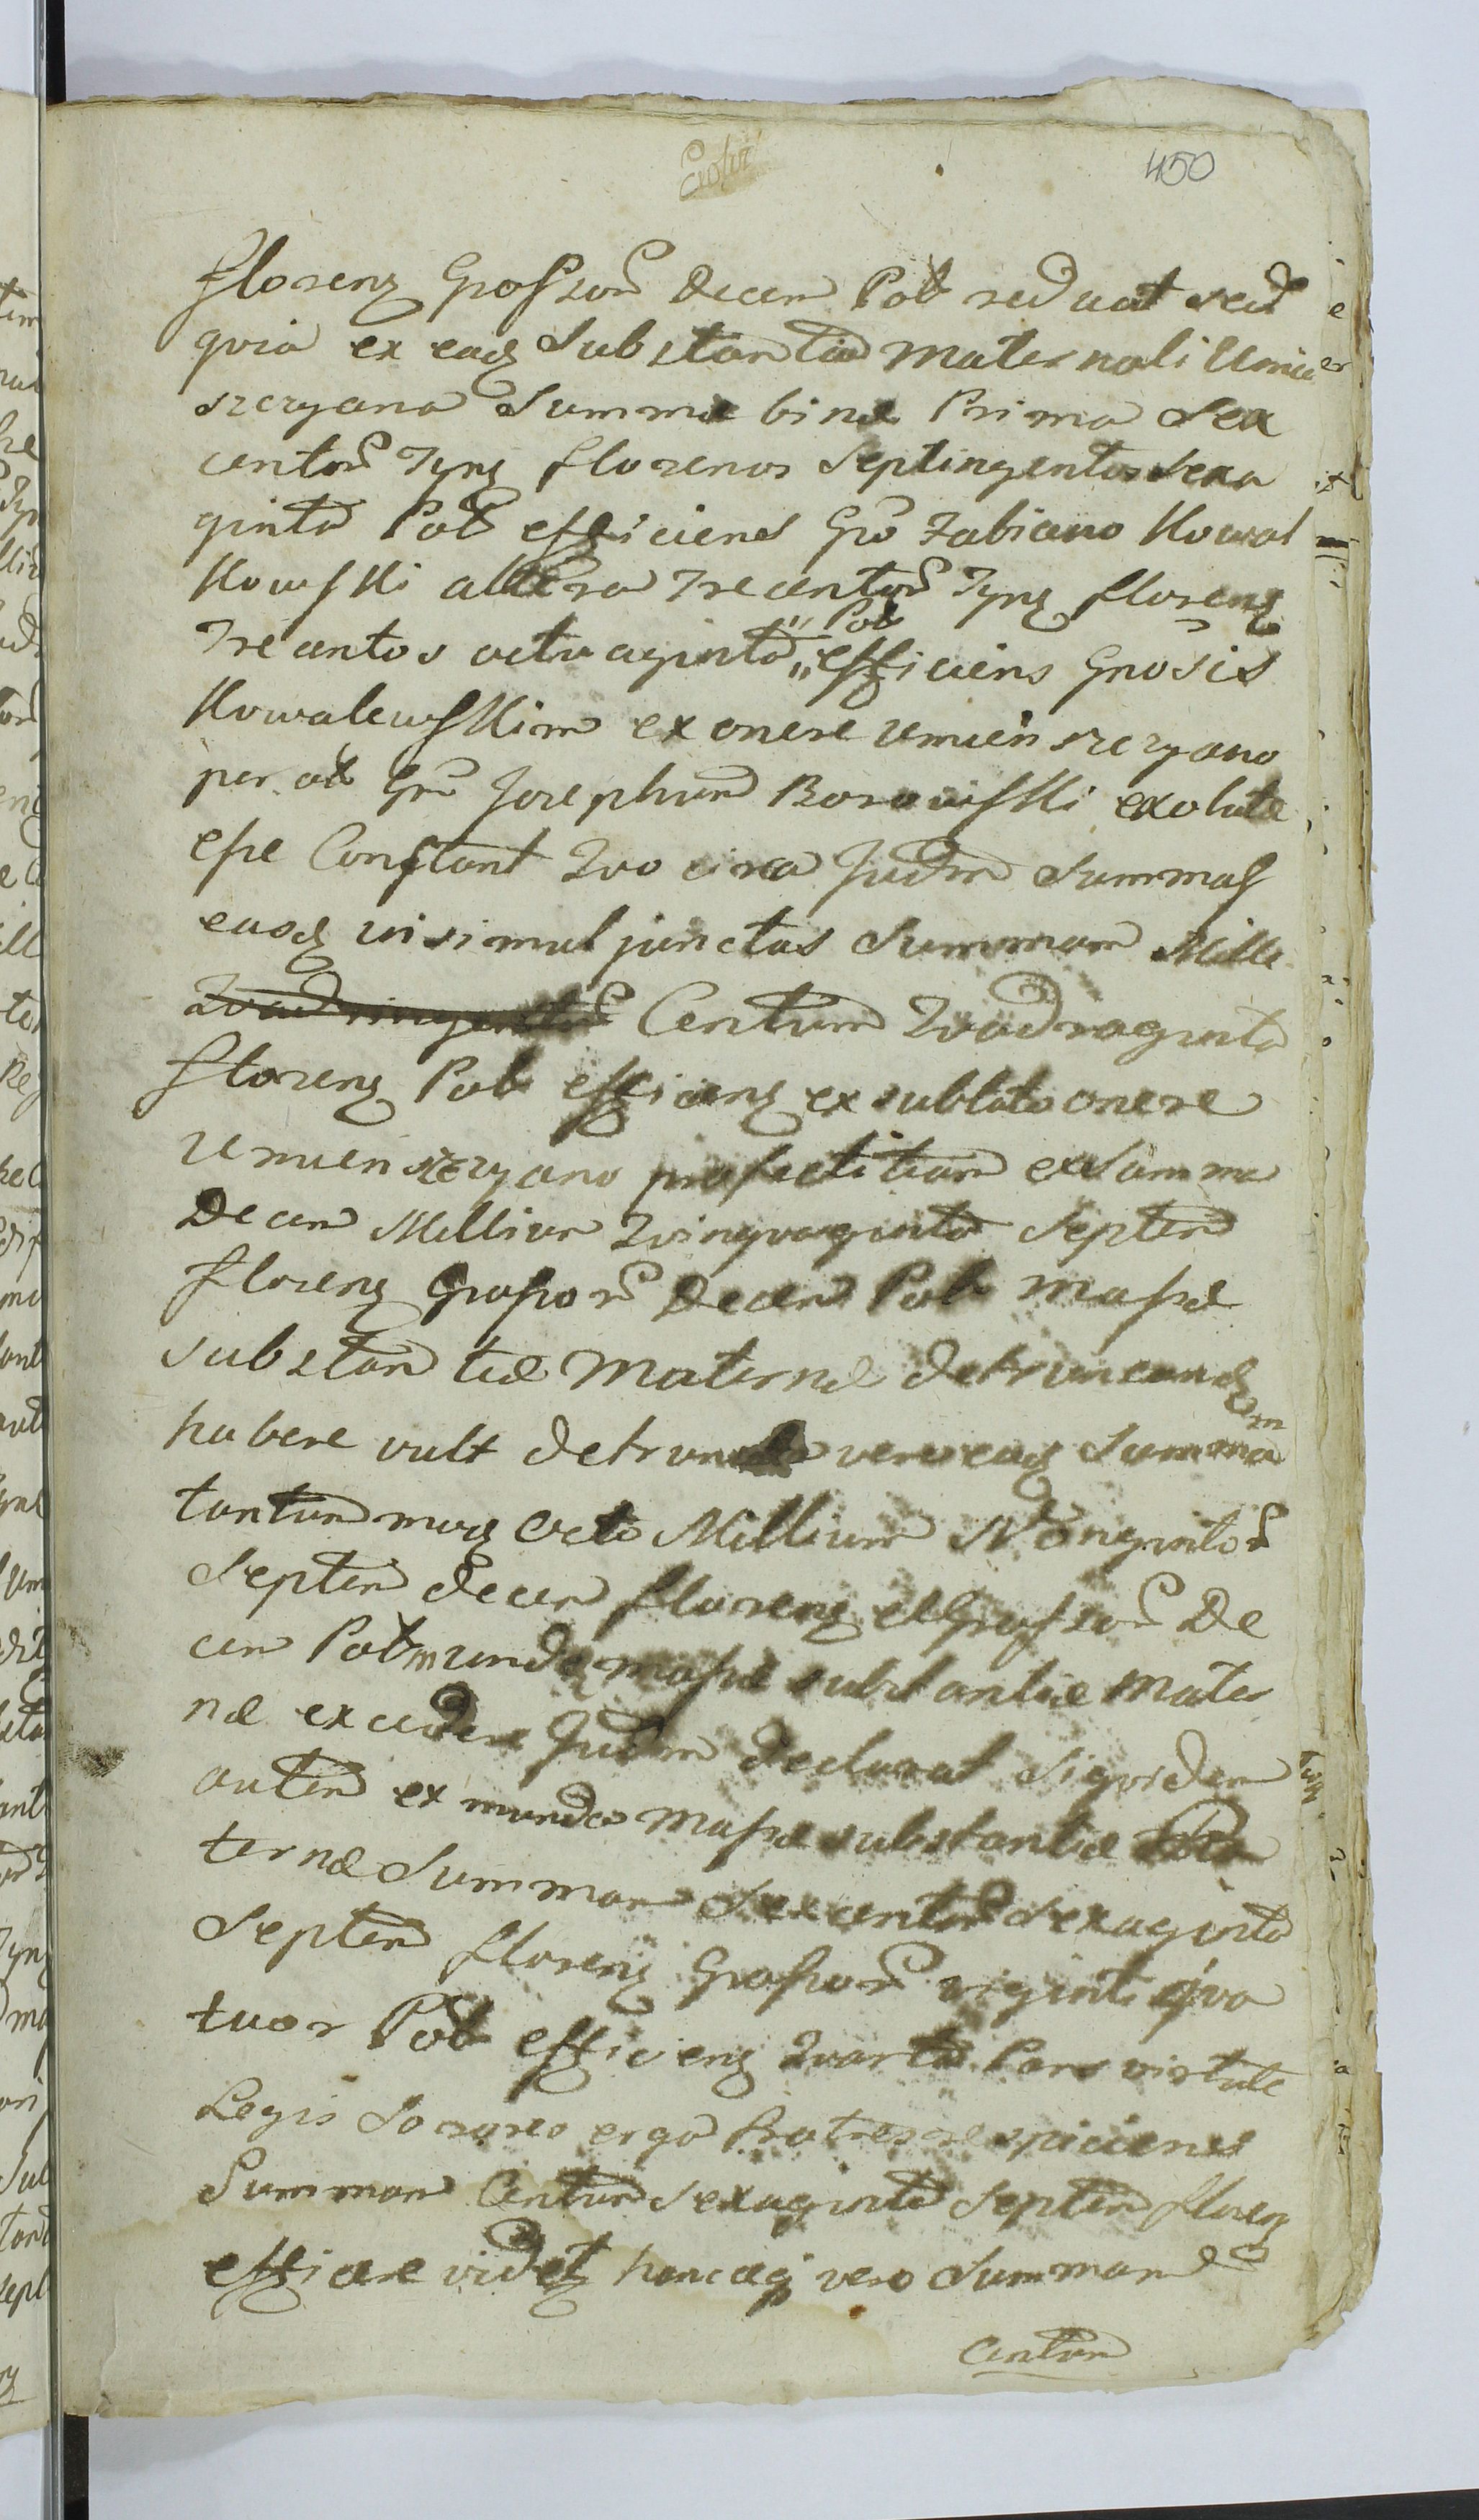 450
floreng Grossor Decem Pol reduat sed
qvia ex eadq Substantia Maternali Umien
szczyana Summæ binæ Prima Sex
centor Tynq florenos Septingentos Sexa
ginta Pol efficiens Gno Fabiano Kowal
kowski altera Trecentor Tynq floreng
Trecentos octuaginta "Pol" efficiens Gnosis
Kowalewskim ex onere Umien szczyano
per ol Gnu Josephum Borowski exolutæ
esse Constant Qvo circa Judm Summas
easdq in simul junctas Summam Mille
Qvadringentor Centum Qvadraginta
floreng Pol efficieng ex sublato onere
Umienszczyano profectitiam ex Summa
Decem Millium Qvinqvaginta Septem
floreng Grossor Decem Pol massæ
substantiæ Maternæ detruncandam
habere vult detruncata vero eadq Summa
tantummodq Octo Millium Nongentor
Septem decem floreng et Grossor De
cem Pol in mundq massæ substantiæ Mater
næ excedere Judm declarat Siqvidem
autem ex munda Massæ substantiæ Ma
ternæ Summam Sexcentor Sexaginta
Septem floreng Grossor viginti qva
tuor Pol efficieng Qvarta Pars virtute
Legis Sorores erga Fratres respiciens
Summam Centum Sexaginta Septem floreng
efficere videtq hancaq vero Summam
Centum